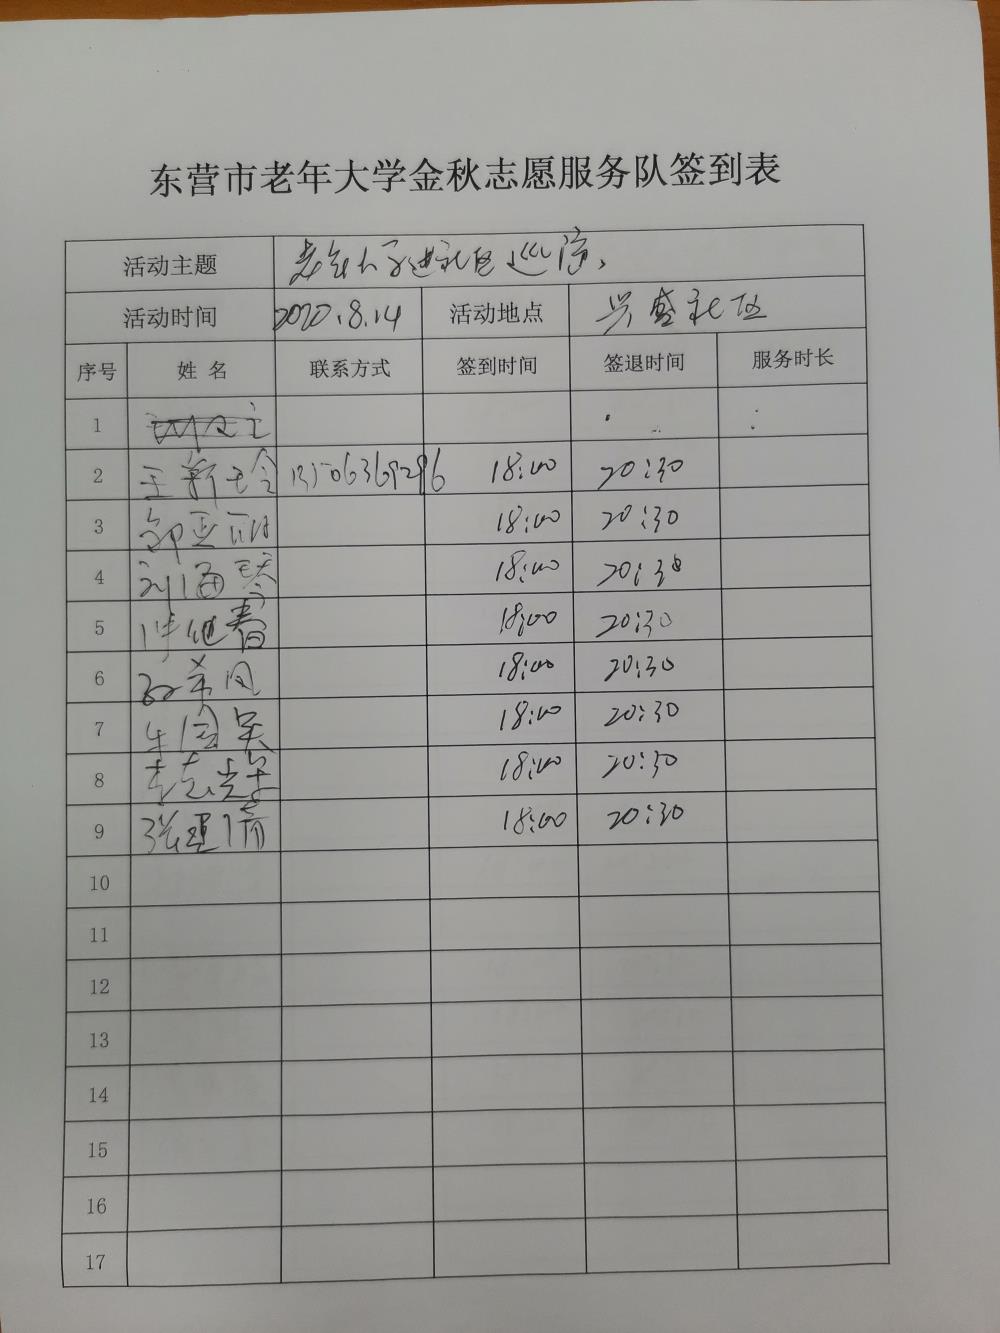 东营市老年大学金秋志愿服务队签到表
活动主题 老年大学进社区巡演
活动时间 2020.8.14 活动地点 兴盛社区
序号 姓 名 联系方式 签到时间 签退时间 服务时长
1
2 王新玲 18:00 20:30
3 邹亚丽 18:00 20:30
4 刘海琴 18:00 20:30
5 18:00 20:30
6 孙希凤 18:00 20:30
7 朱国英 18:00 20:30
8 18:00 20:30
9 18:00 20:30
10
11
12
13
14
15
16
17